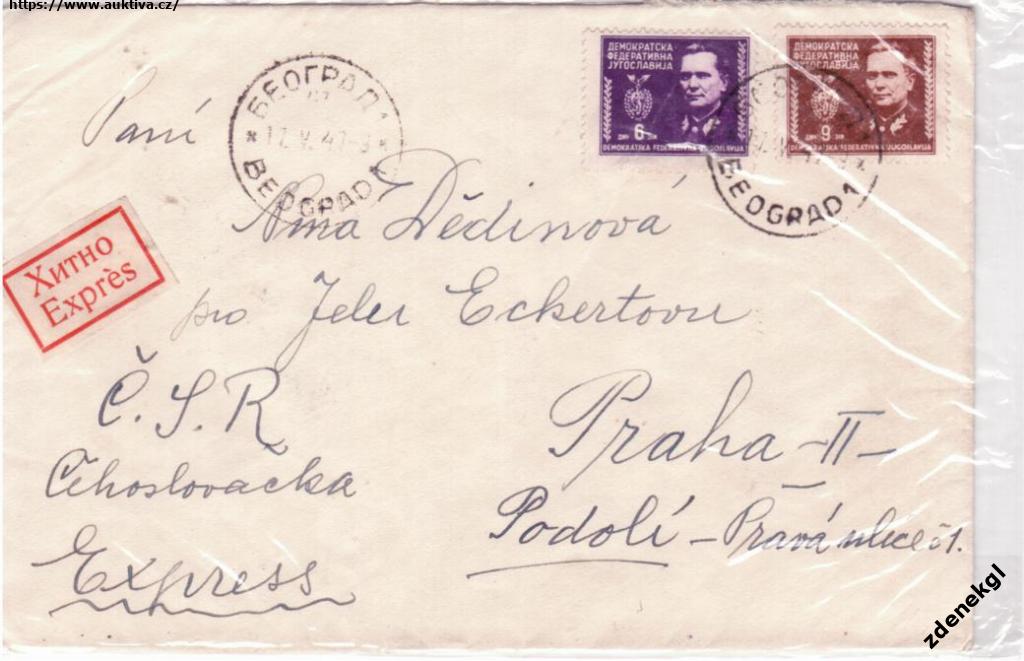 https://www.auktiva.cz/
ДЕМОКРАТСКА
ФЕДЕРАТИВНА
ЈУГОСЛАВИЈА
6
DEMOKRATSKA FEDERATIVNA JUGOSLAVIJA
ДЕМОКРАТСКА
ФЕДЕРАТИВНА
ЈУГОСЛАВИЈА
9
DEMOKRATSKA FEDERATIVNA JUGOSLAVIJA
БЕОГРАД 1
17.V.47-8
BEOGRAD 1
BEOGRAD 1
Paní
Dědinová
Хитно
Exprès
pro Jelu Eckertovu
Č.S.R
Čehoslovačka
Express
Praha - II -
Podolí - Pravá ulice č 1.
zdenekgl